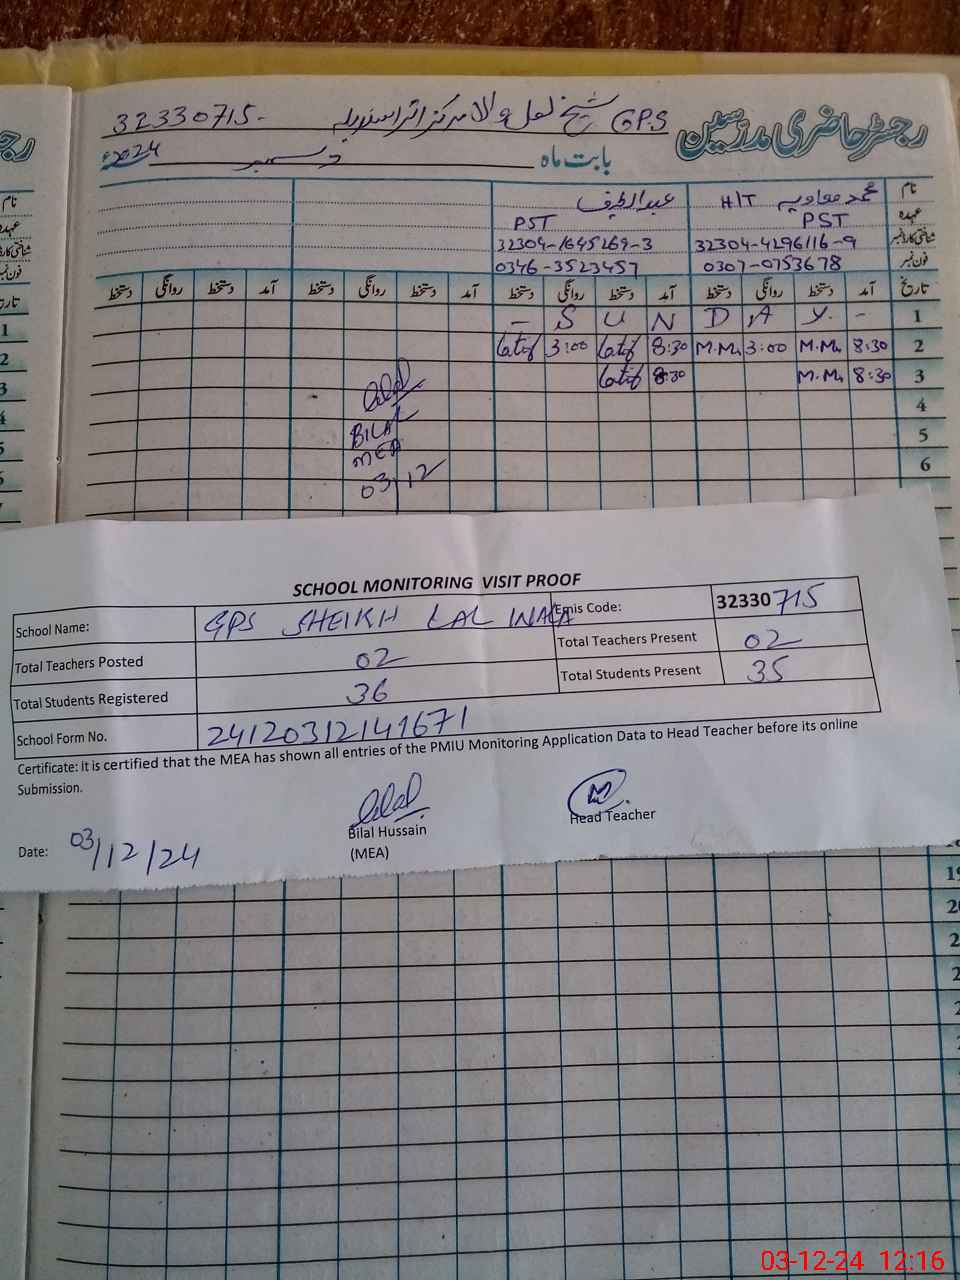 رجسٹر حاضری مدرسین
G.P.S شیخ لعل والا مرکز 32330715-
بابت ماہ دسمبر 2024ء
نام محمد معاویہ H/T عبدالطیف
عہدہ PST PST
شناختی کارڈ نمبر 32304-4296116-9 32304-1645269-3
فون نمبر 0307-0753678 0346-3523457
تاریخ آمد دستخط روانگی دستخط آمد دستخط روانگی دستخط آمد دستخط روانگی دستخط آمد دستخط روانگی دستخط
1 - S U N D A Y. -
2 8:30 M.M. 3:00 M.M. 8:30 Latif 3:00 Latif
3 8:30 M.M. 8:30 Latif
4
5
6
Bilal
BILAL
MEA
03/12
SCHOOL MONITORING VISIT PROOF
School Name: GPS SHEIKH LAL WALA Emis Code: 32330715
Total Teachers Posted 02 Total Teachers Present 02
Total Students Registered 36 Total Students Present 35
School Form No. 24120312141671
Certificate: It is certified that the MEA has shown all entries of the PMIU Monitoring Application Data to Head Teacher before its online
Submission.
Bilal
Bilal Hussain
(MEA)
M.
Head Teacher
Date: 03/12/24
19
03-12-24 12:16